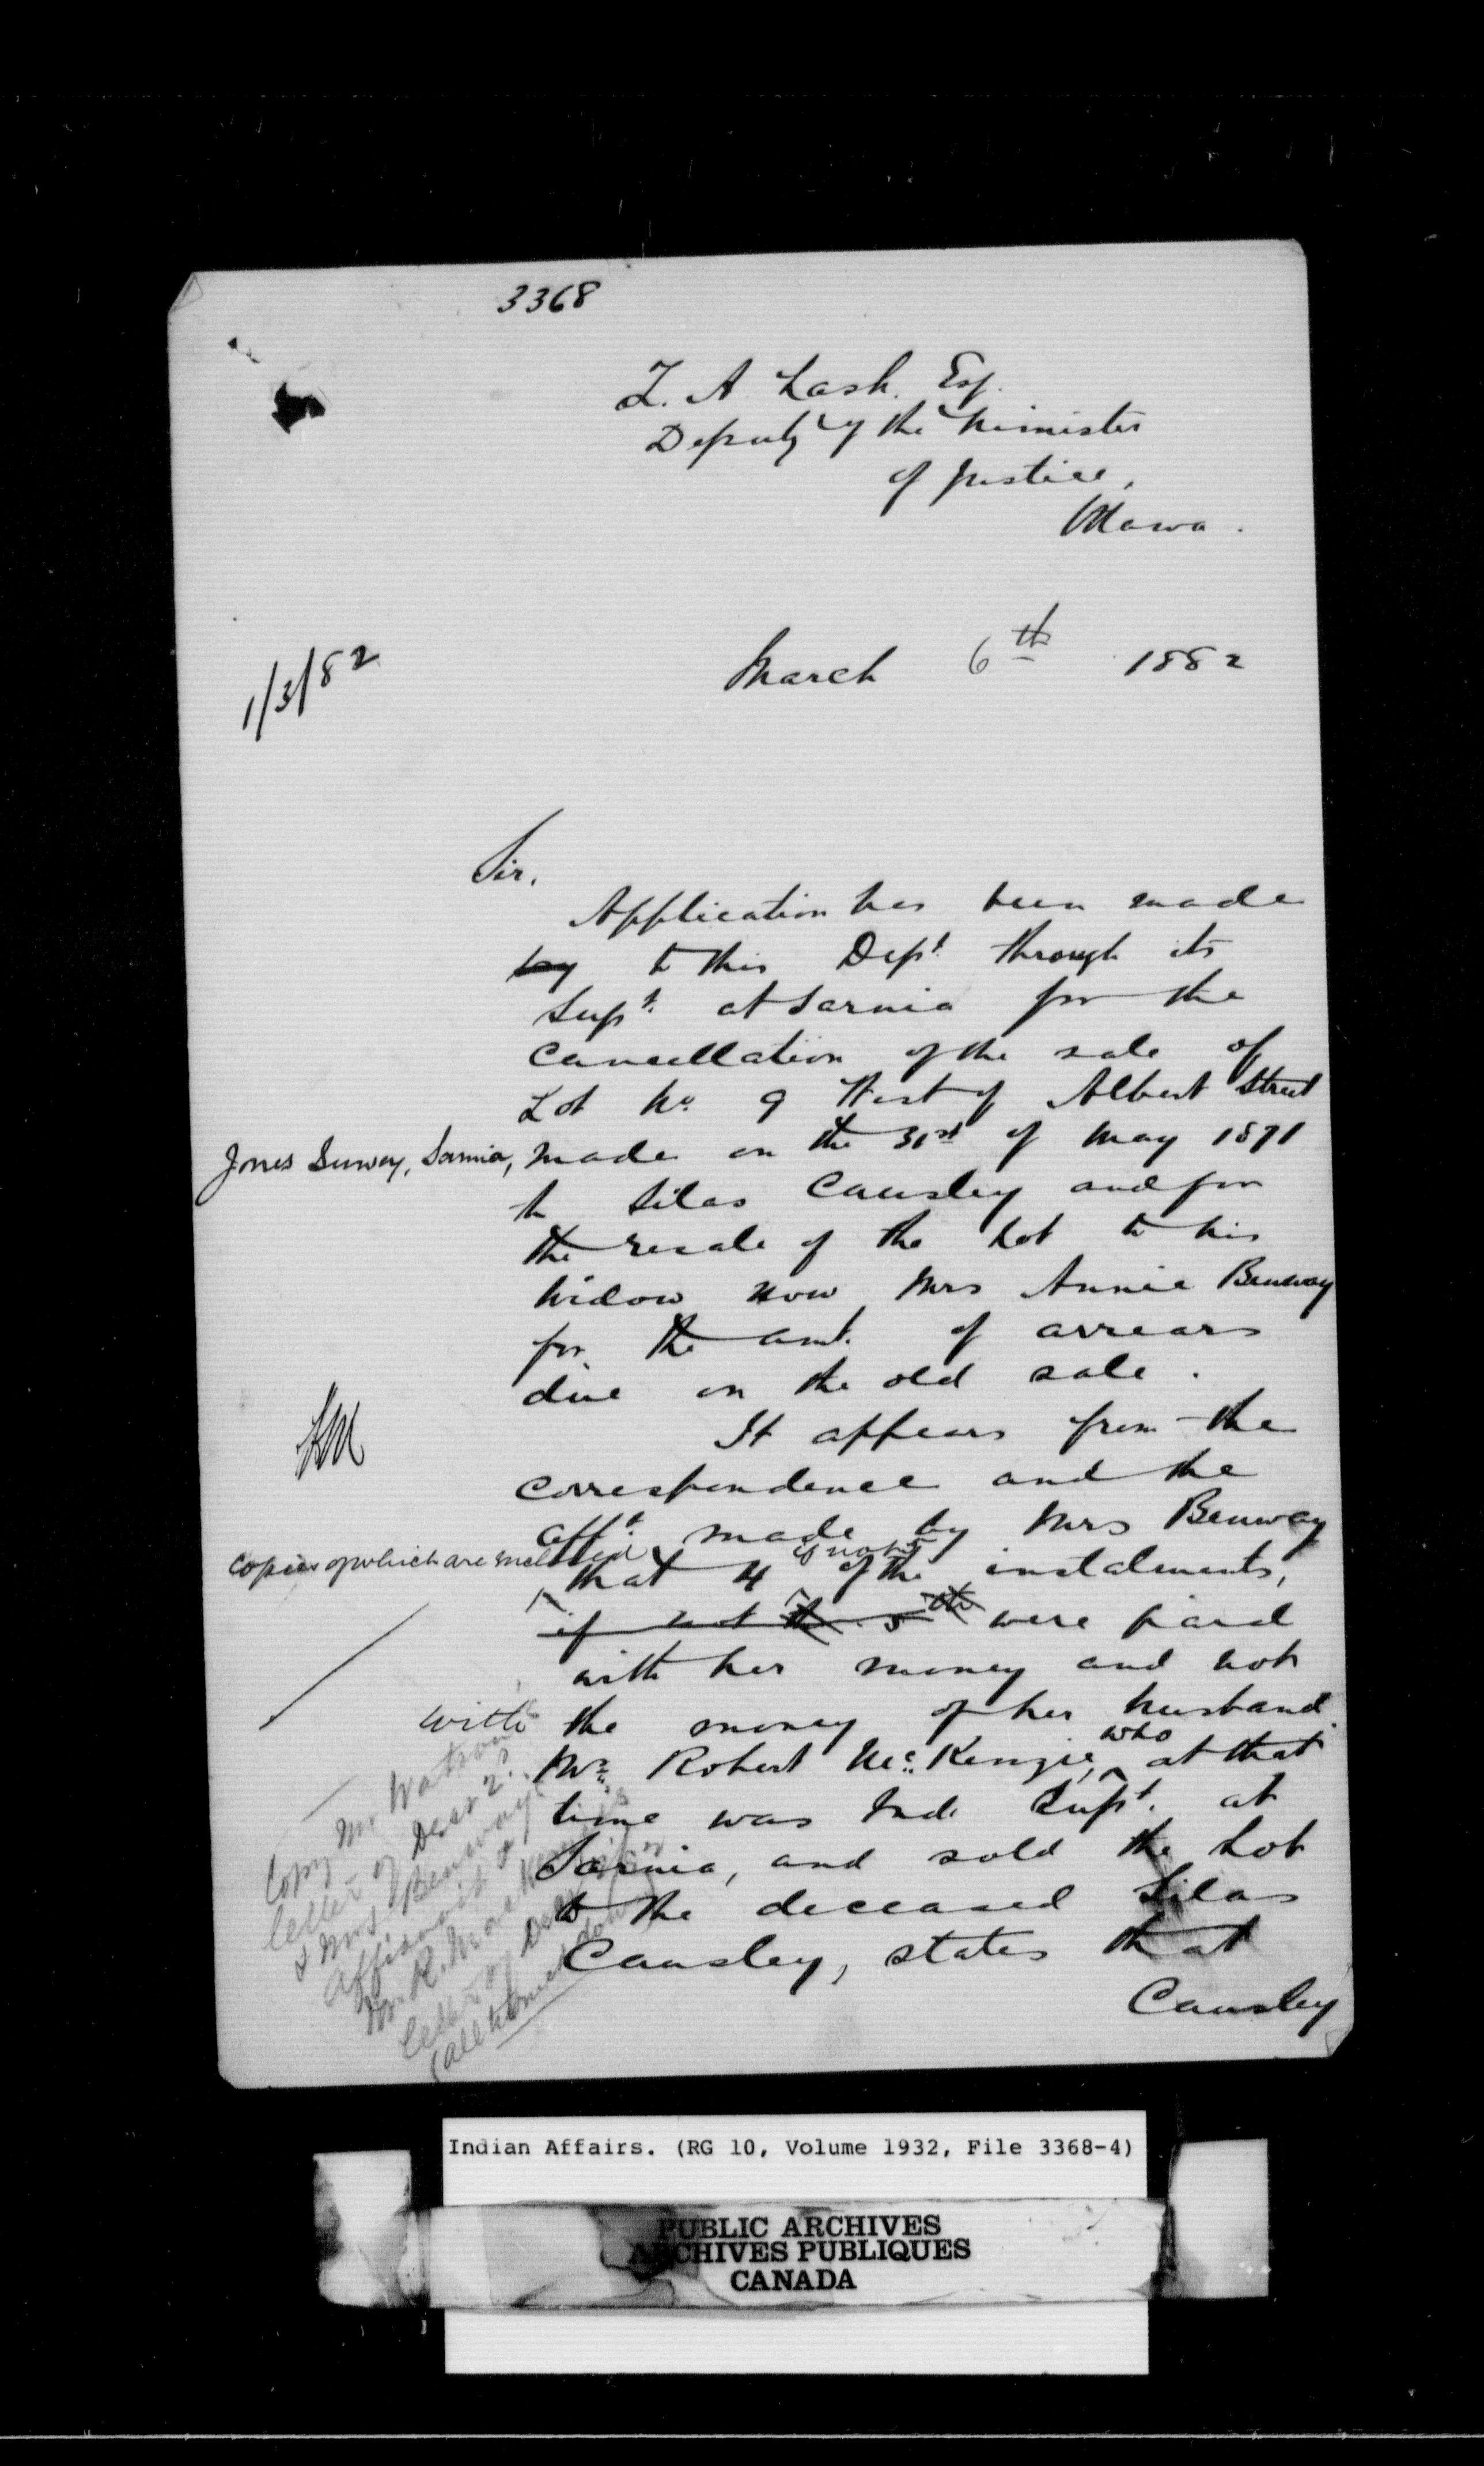 3368
Z. A Lash. Esq.
Deputy of the Minister
of Justice,
Ottawa.
1/3/82
March 6th 1882
Sir.
Application has been made
by to this Dept. through its
Supt. at Sarnia for the
cancellation of the sale of
Lot No. 9 West of Albert Street
Jones Survey, Sarnia, made on the 31st of May 1871
to Silas Causley and for
the resale of the Lot to his
widow now Mrs Annie Benway
for the amt. of arrears
due on the old sale.
It appears from the
correspondence and the
afft. made by Mrs Benway
copies of which are inclosed
that 4 if not 5 of the instalments,
if not the 5th were paid
with her money and not
the money of her husband.
Mr. Robert McKenzie, who at that
time was Ind. Supt. at
Sarnia, and sold the Lot
to the deceased Silas
Causley, states that
Causley
with
Copy Mr Watson's
letter of Decr 2d
& Mrs Benway's
affidavit &
Mr R. MacKenzie's
letter of Decr
(all turned down)
Indian Affairs. (RG 10, Volume 1932, File 3368-4)
PUBLIC ARCHIVES
ARCHIVES PUBLIQUES
CANADA